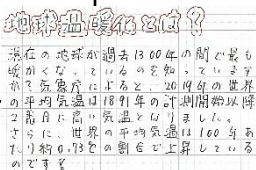 地球温暖化とは？
現在の地球が過去1300年の間で最も
暖かくなっているのを知っています
か？気象庁によると、2019年の世界
の平均気温は1891年の計測開始以降
2番目に高い気温となりました。
さらに、世界の平均気温は100年あ
たり約0.73℃の割合で上昇している
のです。